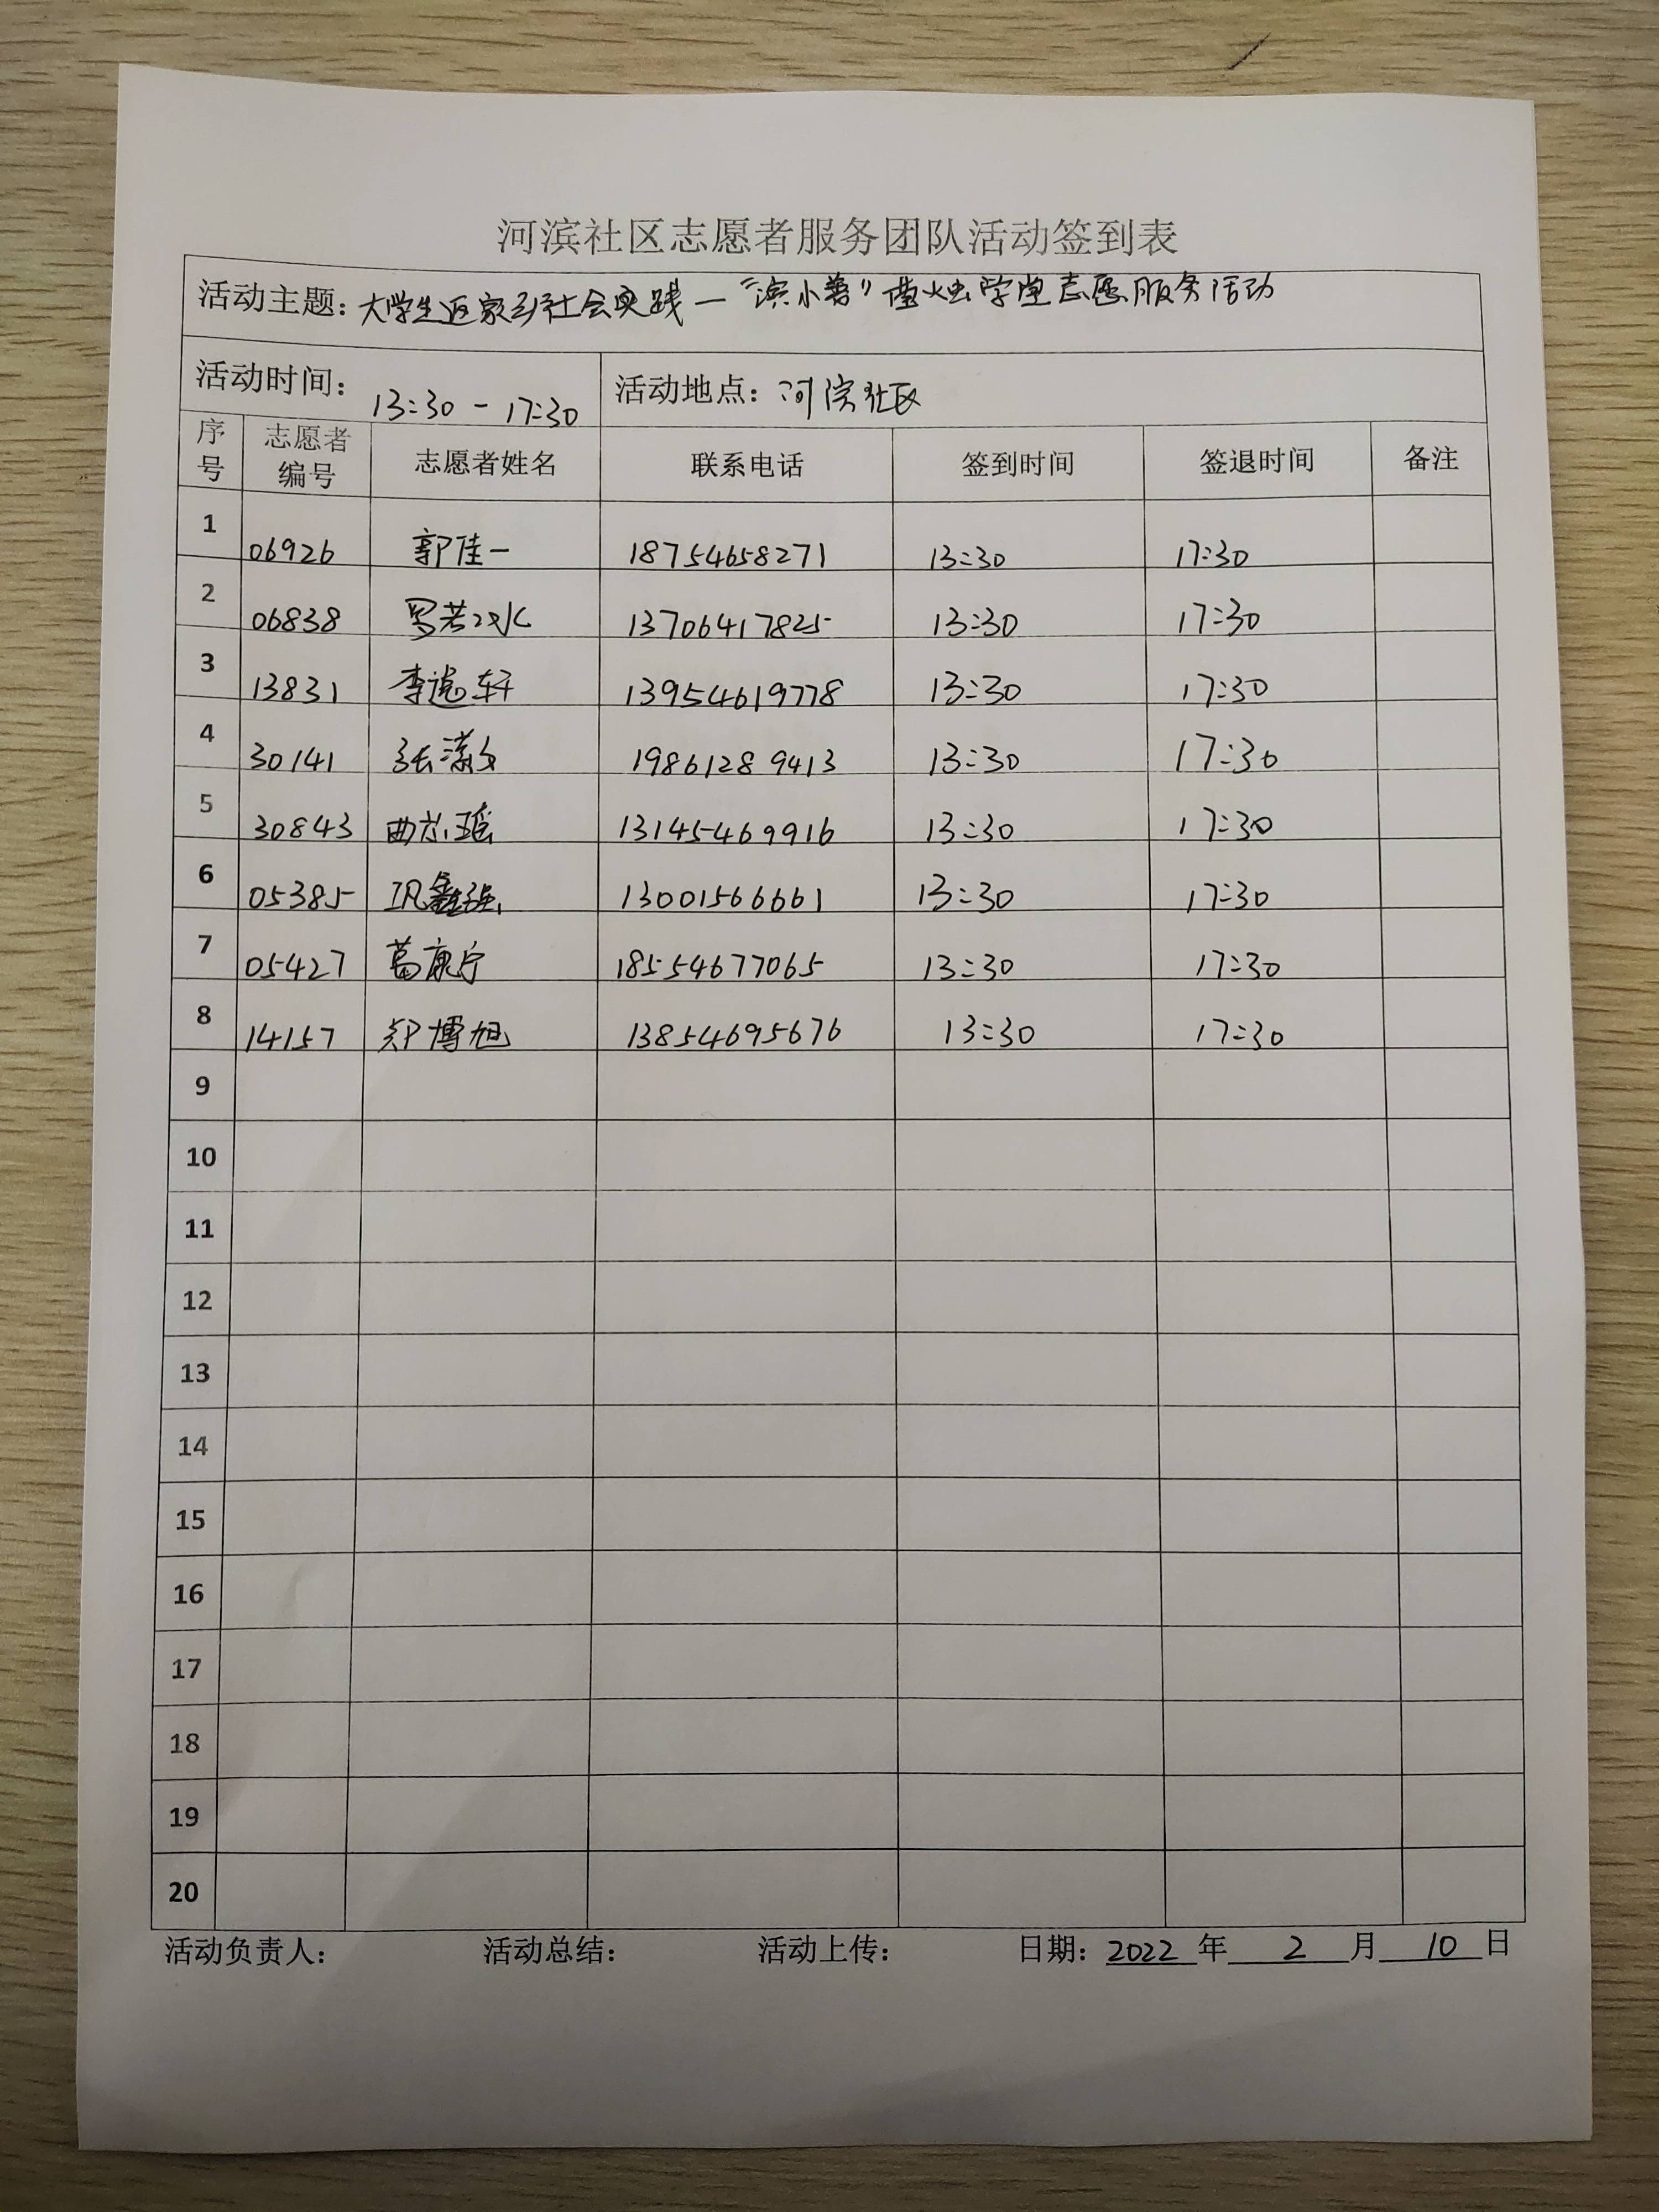 河滨社区志愿者服务团队活动签到表
活动主题：大学生返家乡社会实践—“滨小善”萤火虫学堂志愿服务活动
活动时间：13:30-17:30 活动地点：河滨社区
序号 志愿者编号 志愿者姓名 联系电话 签到时间 签退时间 备注
1 06926 郭佳一 18754658271 13:30 17:30
2 06838 罗若冰 13706417825 13:30 17:30
3 13831 李逸轩 13954619778 13:30 17:30
4 30141 张潇文 19861289413 13:30 17:30
5 30843 曲 瑶 13145469916 13:30 17:30
6 05385 巩鑫强 13001566661 13:30 17:30
7 05427 葛康宁 18554677065 13:30 17:30
8 14157 郑博旭 13854695676 13:30 17:30
9
10
11
12
13
14
15
16
17
18
19
20
活动负责人： 活动总结： 活动上传： 日期：2022年2月10日